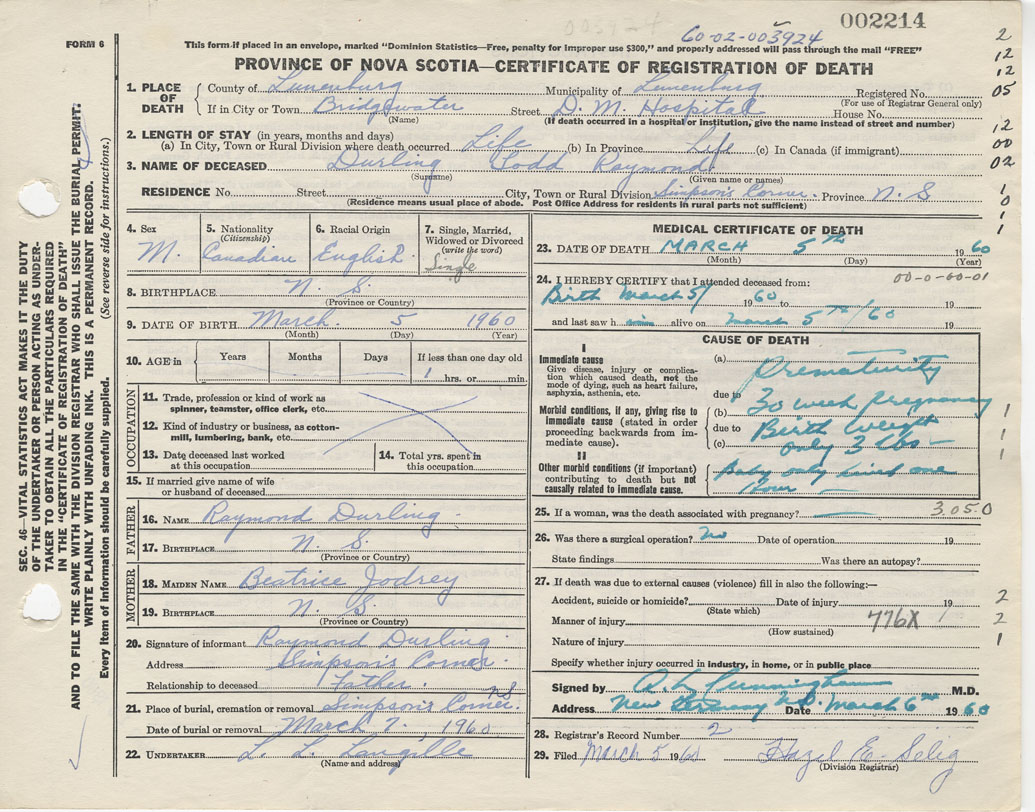 002214
003924
60-02-003924
FORM 6
This form if placed in an envelope, marked "Dominion Statistics—Free, penalty for improper use $300," and properly addressed will pass through the mail "FREE"
PROVINCE OF NOVA SCOTIA—CERTIFICATE OF REGISTRATION OF DEATH
1. PLACE OF DEATH
County of Lunenburg Municipality of Lunenburg Registered No.
(For use of Registrar General only)
If in City or Town Bridgewater Street D. M. Hospital House No.
(Name) (If death occurred in a hospital or institution, give the name instead of street and number)
2. LENGTH OF STAY (in years, months and days)
(a) In City, Town or Rural Division where death occurred Life (b) In Province Life (c) In Canada (if immigrant)
3. NAME OF DECEASED Durling Todd Raymond
(Surname) (Given name or names)
RESIDENCE No. Street City, Town or Rural Division Simpson's Corner. Province N. S
(Residence means usual place of abode. Post Office Address for residents in rural parts not sufficient)
4. Sex
M.
5. Nationality
(Citizenship)
Canadian
6. Racial Origin
English
7. Single, Married, Widowed or Divorced
(write the word)
Single
8. BIRTHPLACE N. S.
(Province or Country)
9. DATE OF BIRTH March 5 1960
(Month) (Day) (Year)
10. AGE in Years Months Days If less than one day old
1 hrs. or min.
OCCUPATION
11. Trade, profession or kind of work as
spinner, teamster, office clerk, etc.
12. Kind of industry or business, as cotton-
mill, lumbering, bank, etc.
13. Date deceased last worked
at this occupation
14. Total yrs. spent in
this occupation
15. If married give name of wife
or husband of deceased
FATHER
16. NAME Raymond Durling
17. BIRTHPLACE N. S.
(Province or Country)
MOTHER
18. MAIDEN NAME Beatrice Jodrey
19. BIRTHPLACE N. S.
(Province or Country)
20. Signature of informant Raymond Durling
Address Simpson's Corner.
Relationship to deceased Father.
21. Place of burial, cremation or removal Simpson's Corner. NS
Date of burial or removal March 7, 1960
22. UNDERTAKER L. L. Langille
(Name and address)
MEDICAL CERTIFICATE OF DEATH
23. DATE OF DEATH MARCH 5th 1960
(Month) (Day) (Year)
24. I HEREBY CERTIFY that I attended deceased from:
00-0-60-01
Birth March 5/ 1960 to 19
and last saw h im alive on March 5th/60 19
CAUSE OF DEATH
I
Immediate cause
Give disease, injury or complica-
tion which caused death, not the
mode of dying, such as heart failure,
asphyxia, asthenia, etc.
(a) Prematurity
due to
Morbid conditions, if any, giving rise to
immediate cause (stated in order
proceeding backwards from im-
mediate cause).
(b) 30 week pregnancy
due to Birth Weight
(c) only 3 lbs —
II
Other morbid conditions (if important)
contributing to death but not
causally related to immediate cause.
Baby only lived one
Hour —
25. If a woman, was the death associated with pregnancy? 305.0
26. Was there a surgical operation? No Date of operation 19
State findings Was there an autopsy?
27. If death was due to external causes (violence) fill in also the following:—
Accident, suicide or homicide? Date of injury 19
(State which)
Manner of injury 776X
(How sustained)
Nature of injury
Specify whether injury occurred in industry, in home, or in public place
Signed by Cunningham M.D.
Address New Germany N.S. Date March 6th 1960
28. Registrar's Record Number 2
29. Filed March 5 1960 Hazel E. Selig
(Division Registrar)
2
12
12
05
12
00
02
1
0
1
1
1
1
2
2
1
SEC. 46—VITAL STATISTICS ACT MAKES IT THE DUTY
OF THE UNDERTAKER OR PERSON ACTING AS UNDER-
TAKER TO OBTAIN ALL THE PARTICULARS REQUIRED
IN THE "CERTIFICATE OF REGISTRATION OF DEATH"
AND TO FILE THE SAME WITH THE DIVISION REGISTRAR WHO SHALL ISSUE THE BURIAL PERMIT.
WRITE PLAINLY WITH UNFADING INK. THIS IS A PERMANENT RECORD.
Every item of information should be carefully supplied. (See reverse side for instructions.)